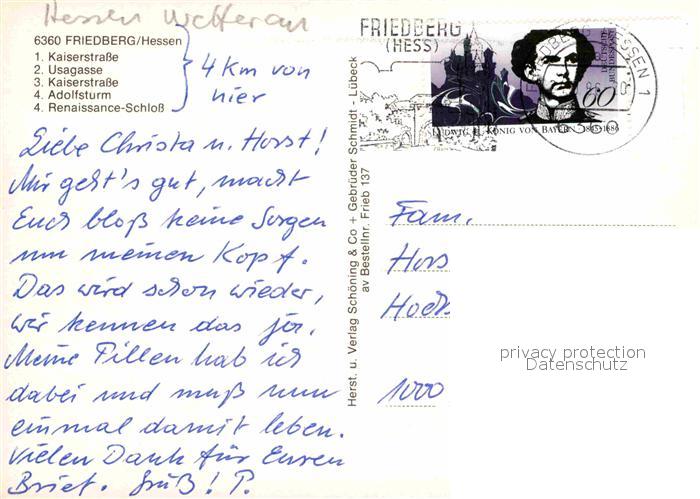 Hessen Wetterau
6360 FRIEDBERG/Hessen
1. Kaiserstraße
2. Usagasse
3. Kaiserstraße
4. Adolfsturm
4. Renaissance-Schloß
4 km von
hier
Liebe Christa u. Horst!
Mir geht's gut, macht
Euch bloß keine Sorgen
um meinen Kopf.
Das wird schon wieder,
wir kennen das ja.
Meine Pillen hab ich
dabei und muß nun
einmal damit leben.
Vielen Dank für Euren
Brief. Gruß! P.
Herst. u. Verlag Schöning & Co + Gebrüder Schmidt · Lübeck
av Bestellnr. Frieb 137
FRIEDBERG
(HESS)
DEUTSCHE
BUNDESPOST
60
LUDWIG II. KÖNIG VON BAYERN 1845-1886
Fam.
Hors
Hoch
1000
privacy protection
Datenschutz